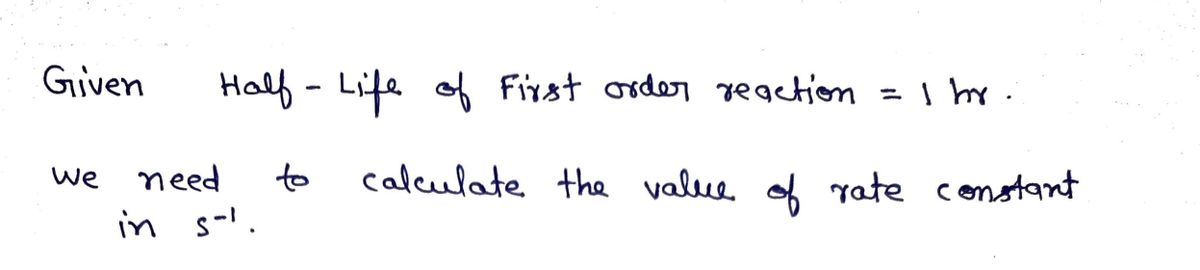 Given Half - Life of First order reaction = 1 hr.
we need to calculate the value of rate constant
in s⁻¹.